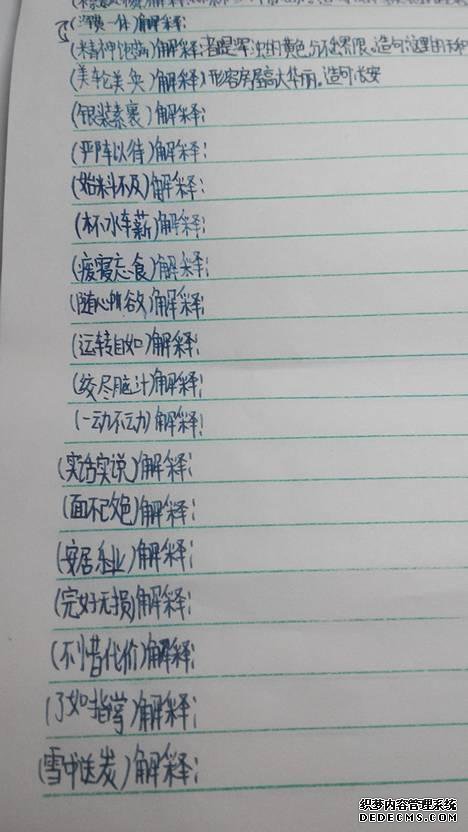 (浑然一体)解释:
(精神饱满)解释:
(美轮美奂)解释:形容房屋高大华丽。造句:长安
(银装素裹)解释:
(严阵以待)解释:
(始料不及)解释:
(杯水车薪)解释:
(废寝忘食)解释:
(随心所欲)解释:
(运转自如)解释:
(绞尽脑汁)解释:
(一动不动)解释:
(实话实说)解释:
(面不改色)解释:
(安居乐业)解释:
(完好无损)解释:
(不惜代价)解释:
(了如指掌)解释:
(雪中送炭)解释:
织梦内容管理系统
DEDECMS.COM